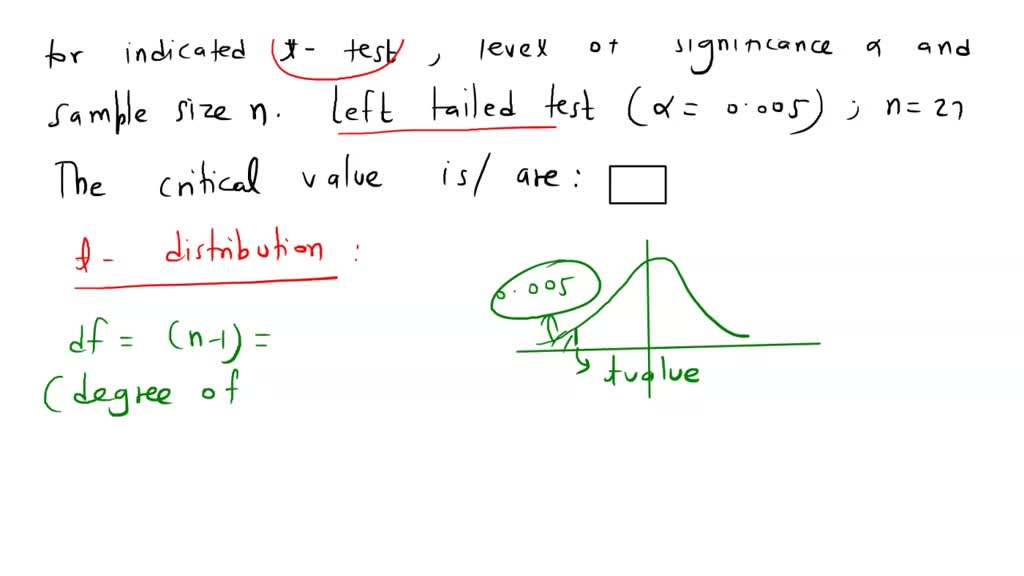 for indicated t- test, level of significance α and
sample size n. left tailed test (α = 0.005) ; n = 27
The critical value is/ are:
t- distribution :
0.005
df = (n-1) =
t value
(degree of